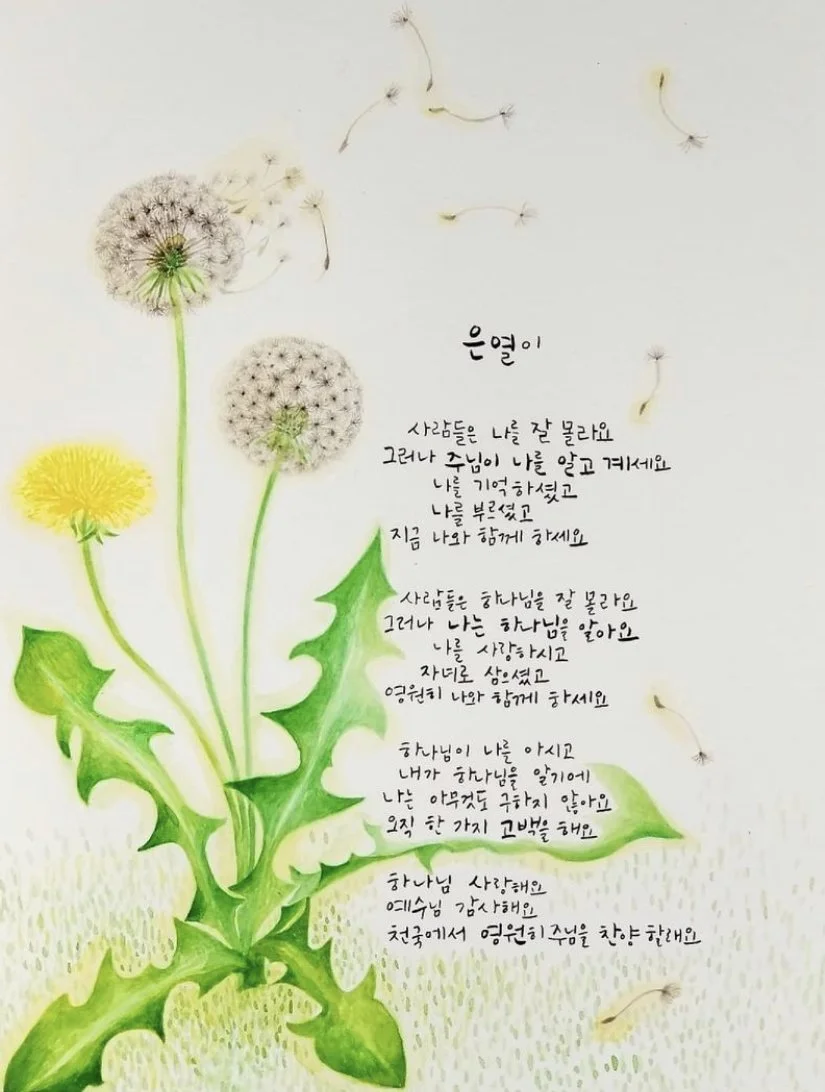 은열이
사람들은 나를 잘 몰라요
그러나 주님이 나를 알고 계세요
나를 기억하셨고
나를 부르셨고
지금 나와 함께 하세요
사람들은 하나님을 잘 몰라요
그러나 나는 하나님을 알아요
나를 사랑하시고
자녀로 삼으셨고
영원히 나와 함께 하세요
하나님이 나를 아시고
내가 하나님을 알기에
나는 아무것도 구하지 않아요
오직 한 가지 고백을 해요
하나님 사랑해요
예수님 감사해요
천국에서 영원히 주님을 찬양할래요